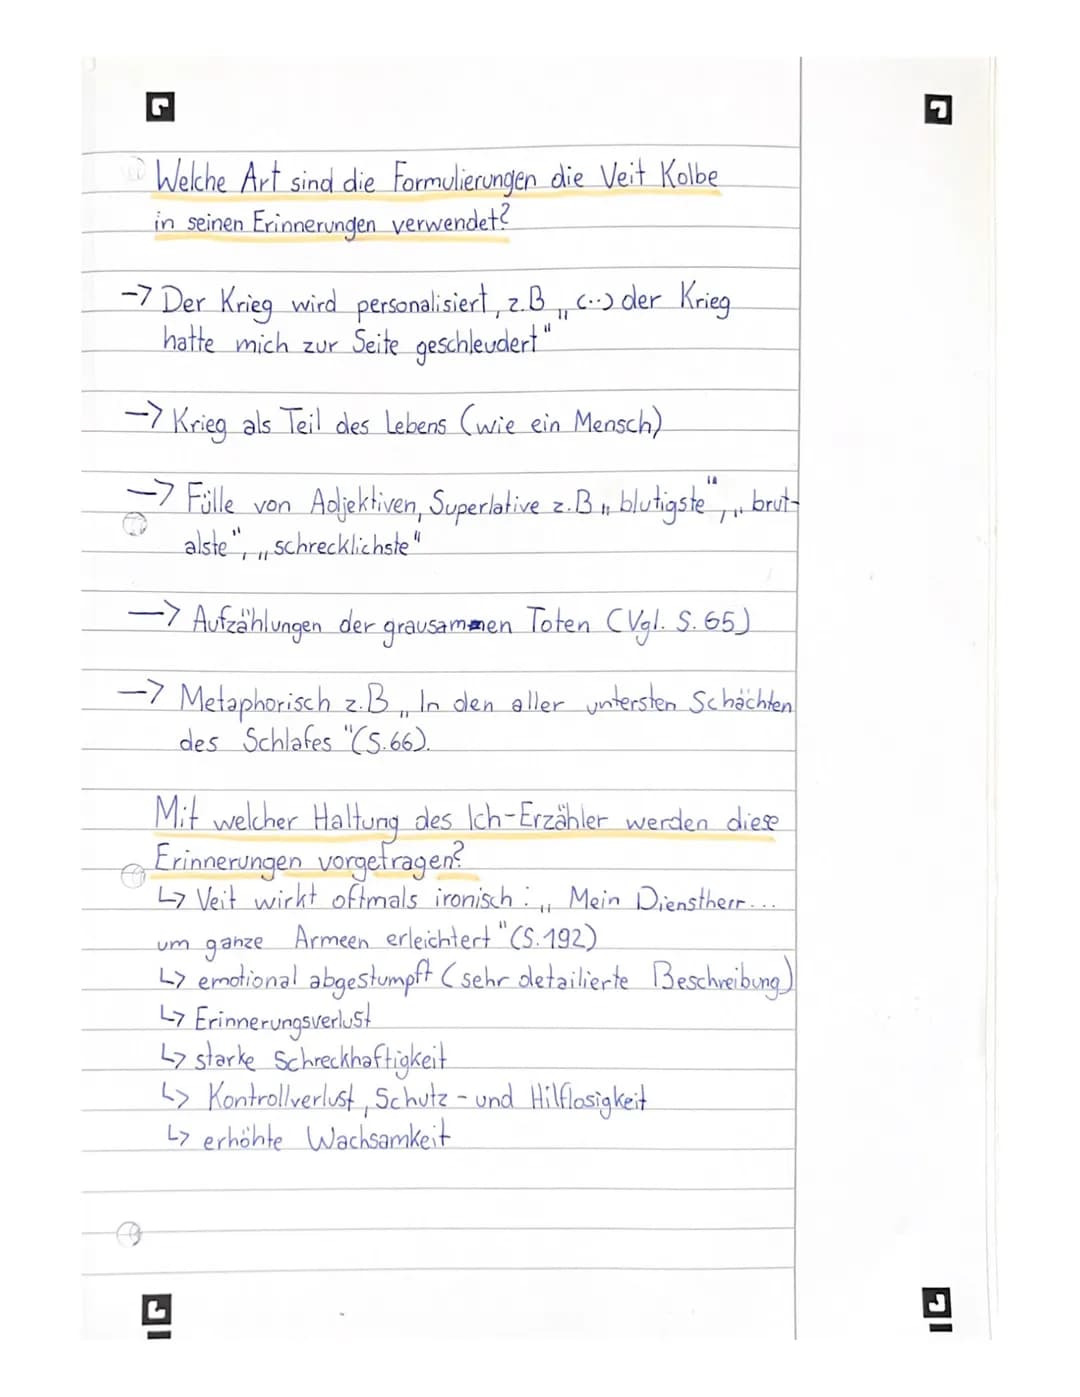 Welche Art sind die Formulierungen die Veit Kolbe
in seinen Erinnerungen verwendet?
-> Der Krieg wird personalisiert, z.B „(...) der Krieg
hatte mich zur Seite geschleudert"
-> Krieg als Teil des Lebens (wie ein Mensch)
-> Fülle von Adjektiven, Superlative z.B „blutigste", „brut-
alste", „schrecklichste"
-> Aufzählungen der grausammen Toten (Vgl. S. 65)
-> Metaphorisch z.B „In den aller untersten Schächten
des Schlafes "(S.66).
Mit welcher Haltung des Ich-Erzähler werden diese
Erinnerungen vorgetragen?
↳ Veit wirkt oftmals ironisch: „Mein Dienstherr...
um ganze Armeen erleichtert "(S.192)
↳ emotional abgestumpft (sehr detailierte Beschreibung)
↳ Erinnerungsverlust
↳ starke Schreckhaftigkeit
↳ Kontrollverlust, Schutz- und Hilflosigkeit
↳ erhöhte Wachsamkeit